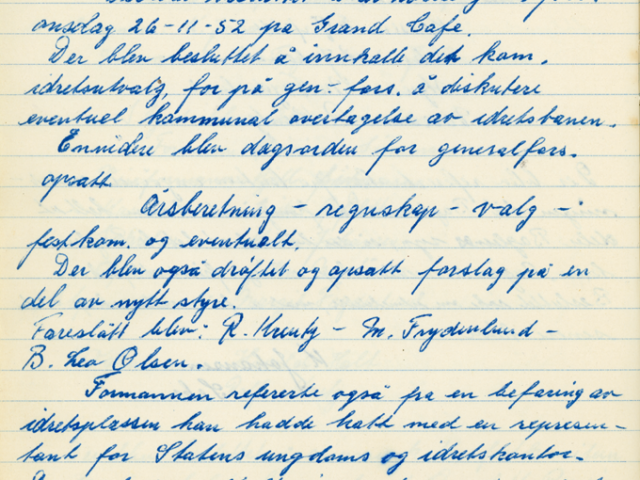 onsdag 26-11-52 på Grand Cafe.
Der blev besluttet å innkalle det kom.
idretsutvalg, for på gen-fors. å diskutere
eventuel kommunal overtagelse av idretsbanen.
Ennvidere blev dagsorden for generalfors.
opsatt
Årsberetning - regnskap - valg - i
festkom. og eventualt.
Der blev også drøftet og opsatt forslag på en
del av nytt styre.
Foreslått blev: R. Krentz - M. Frydenlund -
B. Leo Olsen.
Formannen refererte også fra en befaring av
idretsplassen han hadde hatt med en represen-
tant for Statens ungdoms og idretskontor.